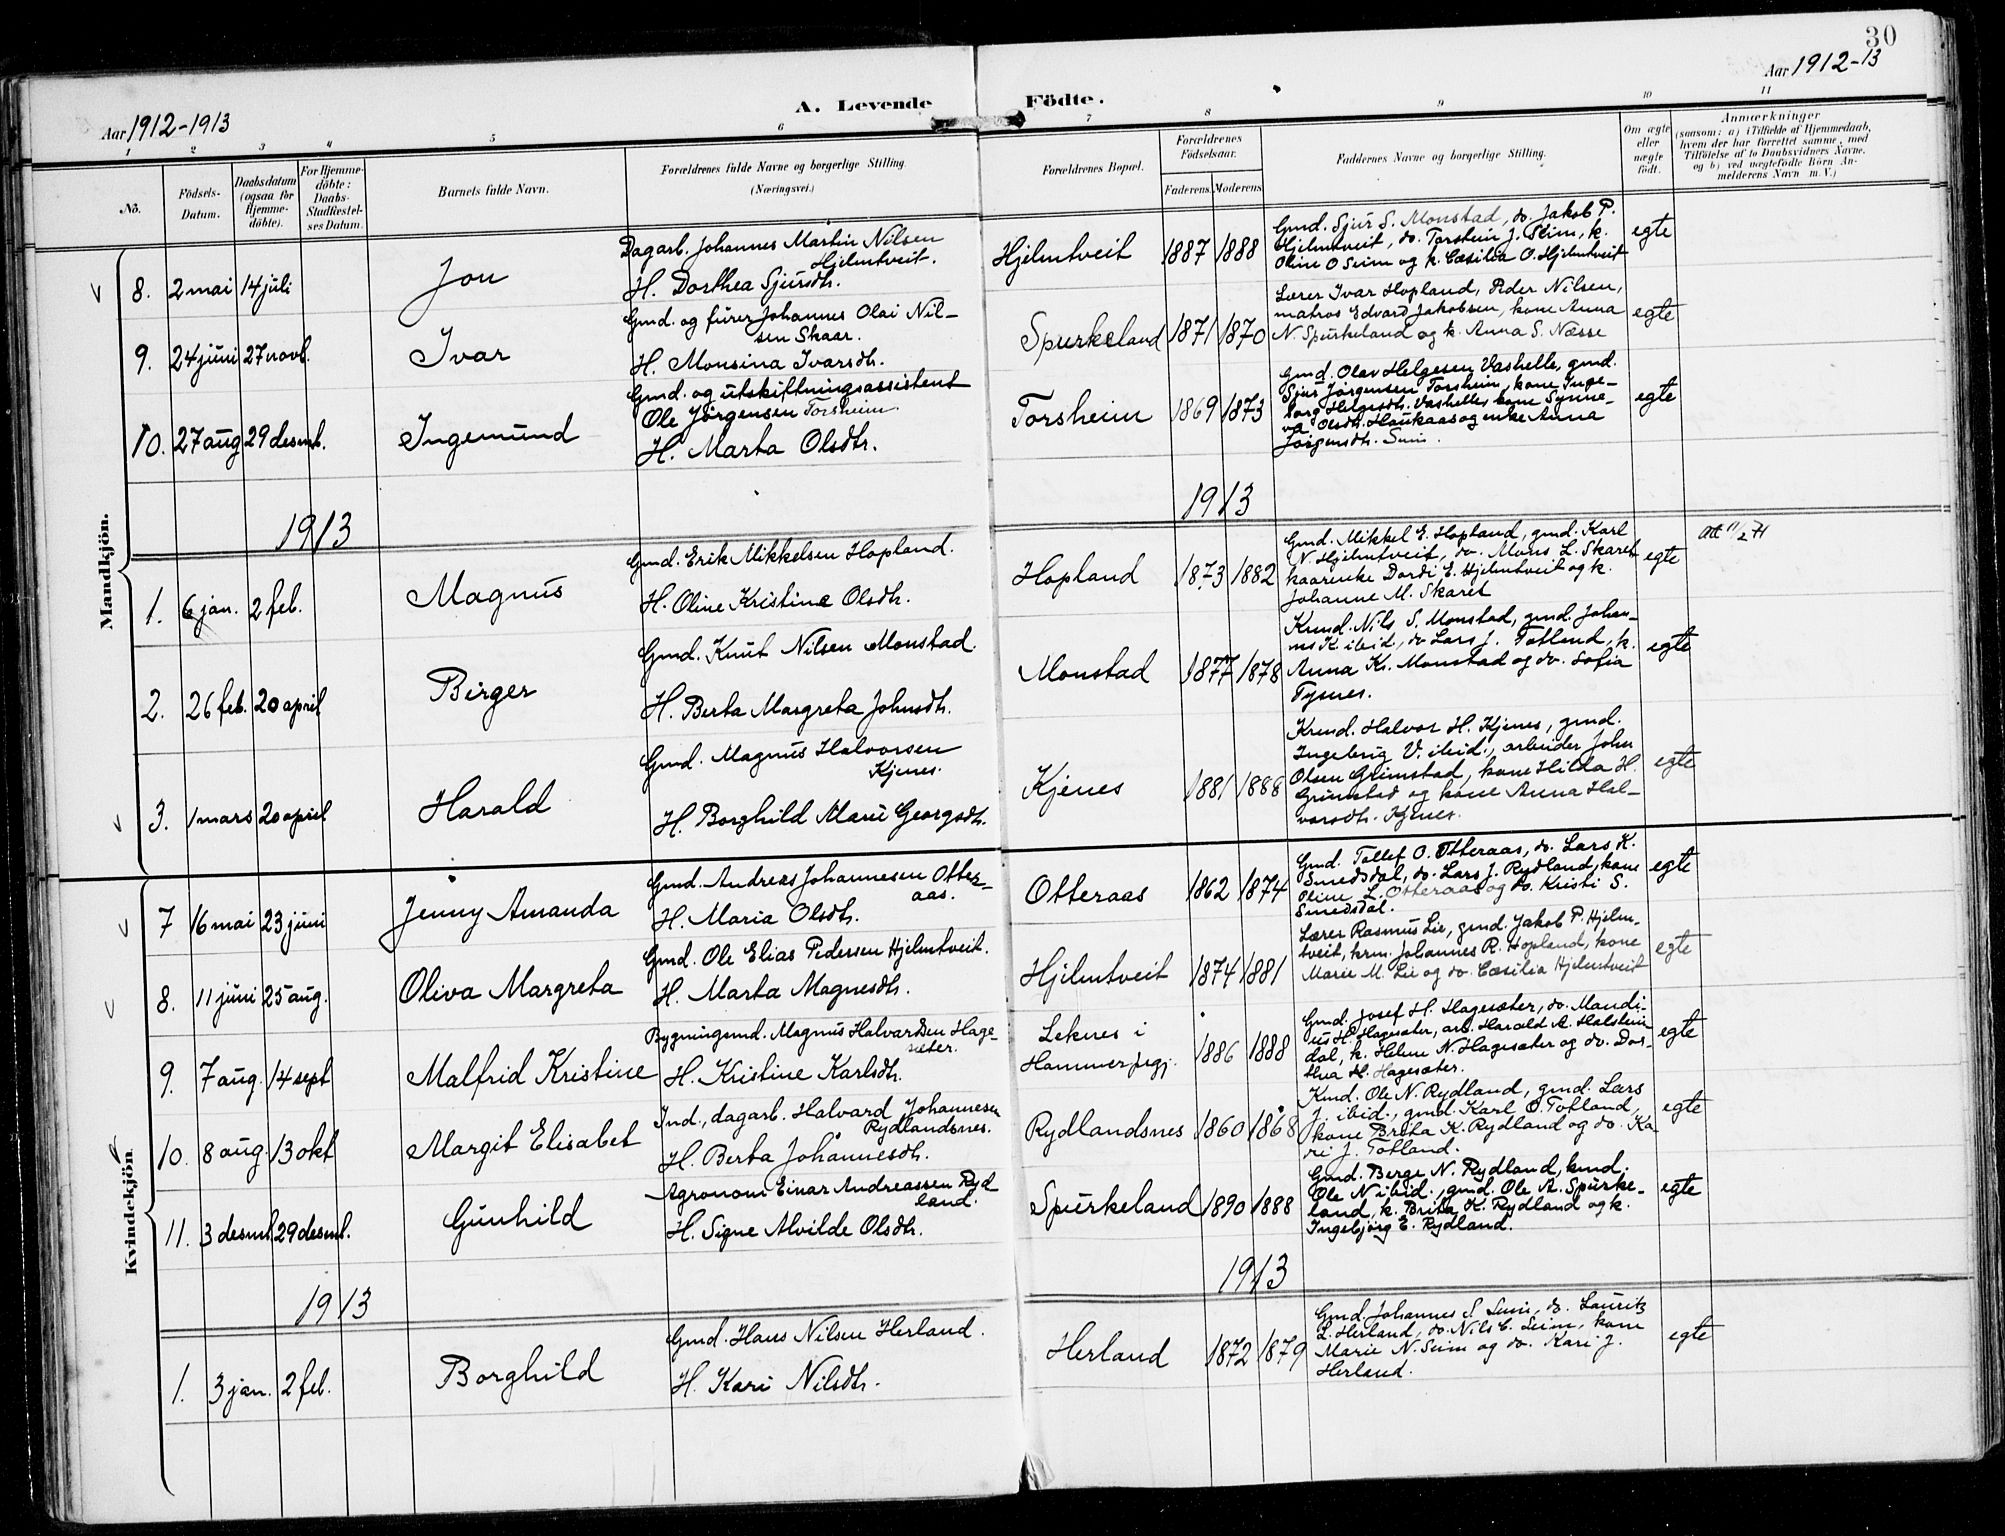 30
Aar 1912-1913
A. Levende Födte.
Aar 1912-13
1 2 3 4 5 6 7 8 9 10 11
No.
Födsels-
Datum.
Daabsdatum
(ogsaa for
Hjemme-
döbte).
For Hjemme-
döbte:
Daabs-
Stadfæstel-
ses Datum.
Barnets fulde Navn.
Forældrenes fulde Navne og borgerlige Stilling.
(Næringsvei.)
Forældrenes Bopæl.
Forældrenes
Födselsaar.
Faderens. Moderens.
Faddernes Navne og borgerlige Stilling.
Om ægte
eller
uægte
födt.
Anmærkninger
(saasom: a) i Tilfælde af Hjemmedaab,
hvem der har forrettet samme, med
Tilföielse af to Daabsvidners Navne,
og b) ved uægtefödte Börn An-
melderens Navn m. V.)
Mandkjön.
8. 2 mai 14 juli
Jon
Dagarb. Johannes Martin Nilsen
Hjelmtveit.
H. Dorthea Sjursdtr.
Hjelmtveit 1887 1888
Gmd. Sjur S. Monstad, do. Jakob P.
Hjelmtveit, do. Torstein J. Seim, k.
Oline O Seim og k. Cæsilia O. Hjelmtveit
egte
9. 24 juni 27 novb.
Ivar
Gmd. og furer Johannes Olai Nil-
sen Skaar.
H. Monsina Ivarsdtr.
Spurkeland 1871 1870
Lærer Ivar Hopland, Peder Nilsen,
matros Edvard Jakobsen, kone Anna
N. Spurkeland og k. Anna S. Næsse
egte
10. 27 aug 29 desmb.
Ingemund
Gmd. og utskiftningsassistent
Ole Jørgensen Torsheim.
H. Marta Olsdtr.
Torsheim 1869 1873
Gmd. Olav Helgesen Vashelle, gmd.
Sjur Jørgensen Torsheim, kone Inge-
borg Helgesdtr. Vashelle, kone Synne-
va Olsdtr. Haukaas og enke Anna
Jørgensdtr. Seim.
egte
1913
1913
1. 6 jan. 2 feb.
Magnus
Gmd. Erik Mikkelsen Hopland.
H. Oline Kristine Olsdtr.
Hopland 1873 1882
Gmd. Mikkel E. Hopland, gmd. Karl
N. Hjelmtveit, do. Mons L. Skaret
kaarenke Dordi E. Hjelmtveit og k.
Johanne M. Skaret
egte
2. 26 feb. 20 april
Birger
Gmd. Knut Nilsen Monstad.
H. Berta Margreta Johnsdtr.
Monstad 1877 1878
Kmd. Nils S. Monstad, gmd. Johan-
nes K. ibid., do Lars J. Totland, k.
Anna Kr. Monstad og do. Sofia
Tysnes.
egte
3. 1 mars 20 april
Harald
Gmd. Magnus Halvorsen
Kjenes.
H. Borghild Marie Georgsdtr.
Kjenes 1881 1888
Kmd. Halvor H. Kjenes, gmd.
Ingebrig V. ibid., arbeider John
Olsen Grimstad, kone Hilda H.
Grimstad og kone Anna Hal-
vorsdtr. Kjenes.
egte
Kvindekjön.
7 16 mai 23 juni
Jenny Amanda
Gmd. Andreas Johannesen Otter-
aas.
H. Maria Olsdtr.
Otteraas 1862 1874
Gmd. Tollef O. Otteraas, do. Lars K.
Smedsdal, do. Lars J. Rydland, kone
Oline L. Otteraas og do. Kristi S.
Smedsdal.
egte
8. 11 juni 25 aug.
Oliva Margreta
Gmd. Ole Elias Pedersen Hjelmtveit.
H. Marta Magnesdtr.
Hjelmtveit 1874 1881
Lærer Rasmus Lie, gmd. Jakob P. Hjelm-
tveit, krm. Johannes R. Hopland, kone
Marie M. Lie og do. Cæsilia Hjelmtveit
egte
9. 7 aug. 14 sept
Malfrid Kristine
Bygningsmd. Magnus Halvardsen Hage-
sæter.
H. Kristine Karlsdtr.
Leknes i
Hammer prgj. 1886 1888
Gmd. Josef H. Hagesæter, do. Mandi-
us H. Hagesæter, arb. Harald A. Halstein-
dal, k. Helene N. Hagesæter og do. Dor-
thea H. Hagesæter.
egte
10. 8 aug. 13 okt
Margit Elisabet
Ind., dagarb. Halvard Johannesen
Rydlandsnes.
H. Berta Johannesdtr.
Rydlandsnes 1860 1868
Kmd. Ole N. Rydland, gmd. Lars
J. ibid., gmd. Karl O. Totland,
kone Brita K. Rydland og do. Ka
ri J. Totland.
egte
11. 3 desmb. 29 desmb.
Gunhild
Agronom Einar Andreassen Ryd
land.
H. Signe Alvilde Olsdtr.
Spurkeland 1890 1888
Gmd. Berge N. Rydland, kmd.
Ole N ibid., gmd. Ole A. Spurke-
land, k. Brita K. Rydland og k.
Ingebjørg E. Rydland.
egte
1913
1913
1. 3 jan. 2 feb.
Borghild
Gmd. Hans Nilsen Herland.
H. Kari Nilsdtr.
Herland 1872 1879
Gmd. Johannes S. Seim, do. Lauritz
L. Herland, do. Nils C. Seim, kone
Marie N. Seim og do. Kari J.
Herland.
egte